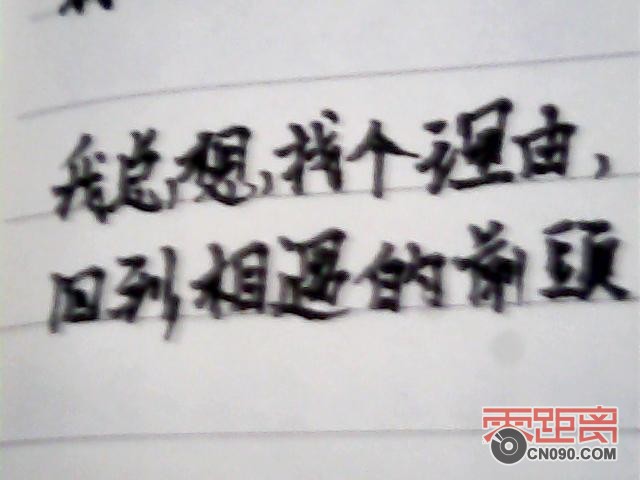 我总想,找个理由,
回到相遇的前頭
零距离
CN090.COM